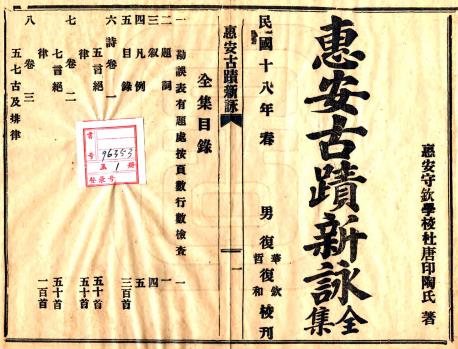 惠安守欽學校杜唐印陶氏 著
惠安古蹟新詠全集
民國十八年春 男 復華 復欽 哲和 校刊
惠安古蹟新詠 一
全集目錄
一 勘誤表有題處按頁數行數檢查
二 題詞 一
三 叙 四
四 凡例 五
五 目錄 三百首
六 詩卷一
五言絕 五十首
律 五十首
七 卷二
七言絕 五十首
律 一百首
八 卷三
五七古及排律
書
号 96353
五 1 册
登录号